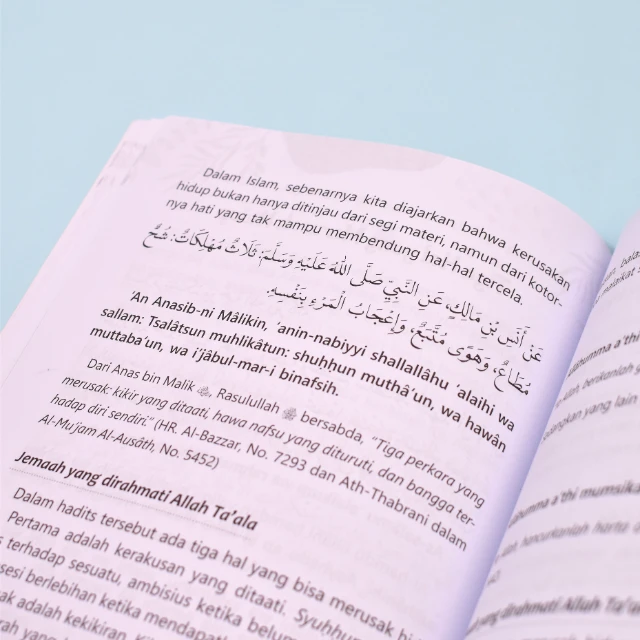 Dalam Islam, sebenarnya kita diajarkan bahwa kerusakan
hidup bukan hanya ditinjau dari segi materi, namun dari kotor-
nya hati yang tak mampu membendung hal-hal tercela.
عَنْ أَنَسِ بْنِ مَالِكٍ، عَنِ النَّبِيِّ صَلَّى اللهُ عَلَيْهِ وَسَلَّمَ: ثَلَاثٌ مُهْلِكَاتٌ: شُحٌّ
مُطَاعٌ، وَهَوًى مُتَّبَعٌ، وَإِعْجَابُ الْمَرْءِ بِنَفْسِهِ.
'An Anasib-ni Mâlikin, 'anin-nabiyyi shallallâhu 'alaihi wa
sallam: Tsalâtsun muhlikâtun: shuḥḥun muthâ'un, wa hawân
muttaba'un, wa i'jâbul-mar-i binafsih.
Dari Anas bin Malik ؓ, Rasulullah ﷺ bersabda, "Tiga perkara yang
merusak: kikir yang ditaati, hawa nafsu yang dituruti, dan bangga ter-
hadap diri sendiri." (HR. Al-Bazzar, No. 7293 dan Ath-Thabrani dalam
Al-Mu'jam Al-Ausâth, No. 5452)
Jemaah yang dirahmati Allah Ta'ala
Dalam hadits tersebut ada tiga hal yang bisa merusak
Pertama adalah kerakusan yang ditaati.
terhadap sesuatu, ambisius ketika
berlebihan ketika
adalah kekikiran.
yang lain
yang dirahmati Allah